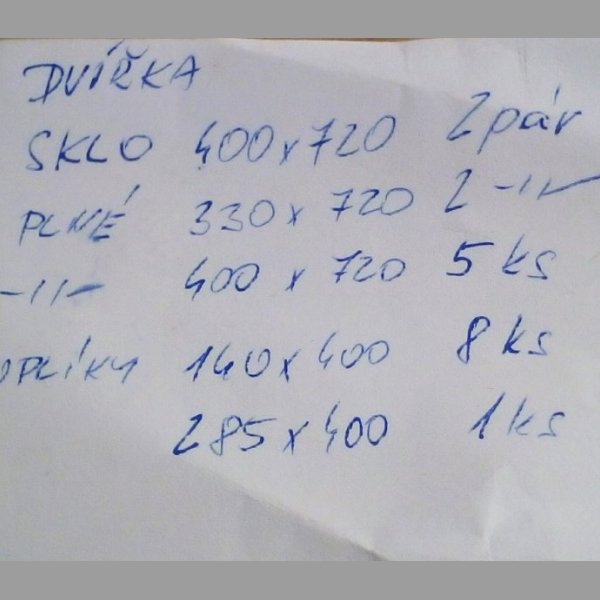 DVÍŘKA
SKLO 400x720 2 pár
PLNÉ 330x720 2 -11-
-11- 400x720 5 ks
OPLÍKY 140x400 8 ks
285x400 1 ks